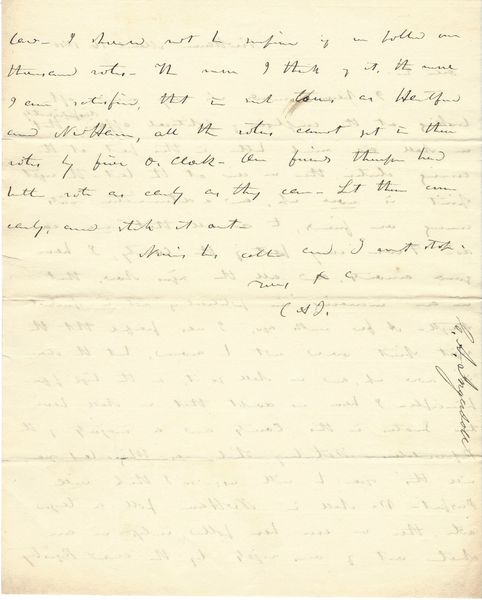 law - I should not be surprised if we polled one
thousand votes - The more I think of it, the more
I am satisfied, that in such towns as Hartford
and N. Haven, all the voters cannot get in their
votes by five O. Clock - Our friends therefore had
better vote as early as they can - Let them come
early, and stick it out -
has called and I must stop
Yours &c
C A I.
C. A. Ingersoll